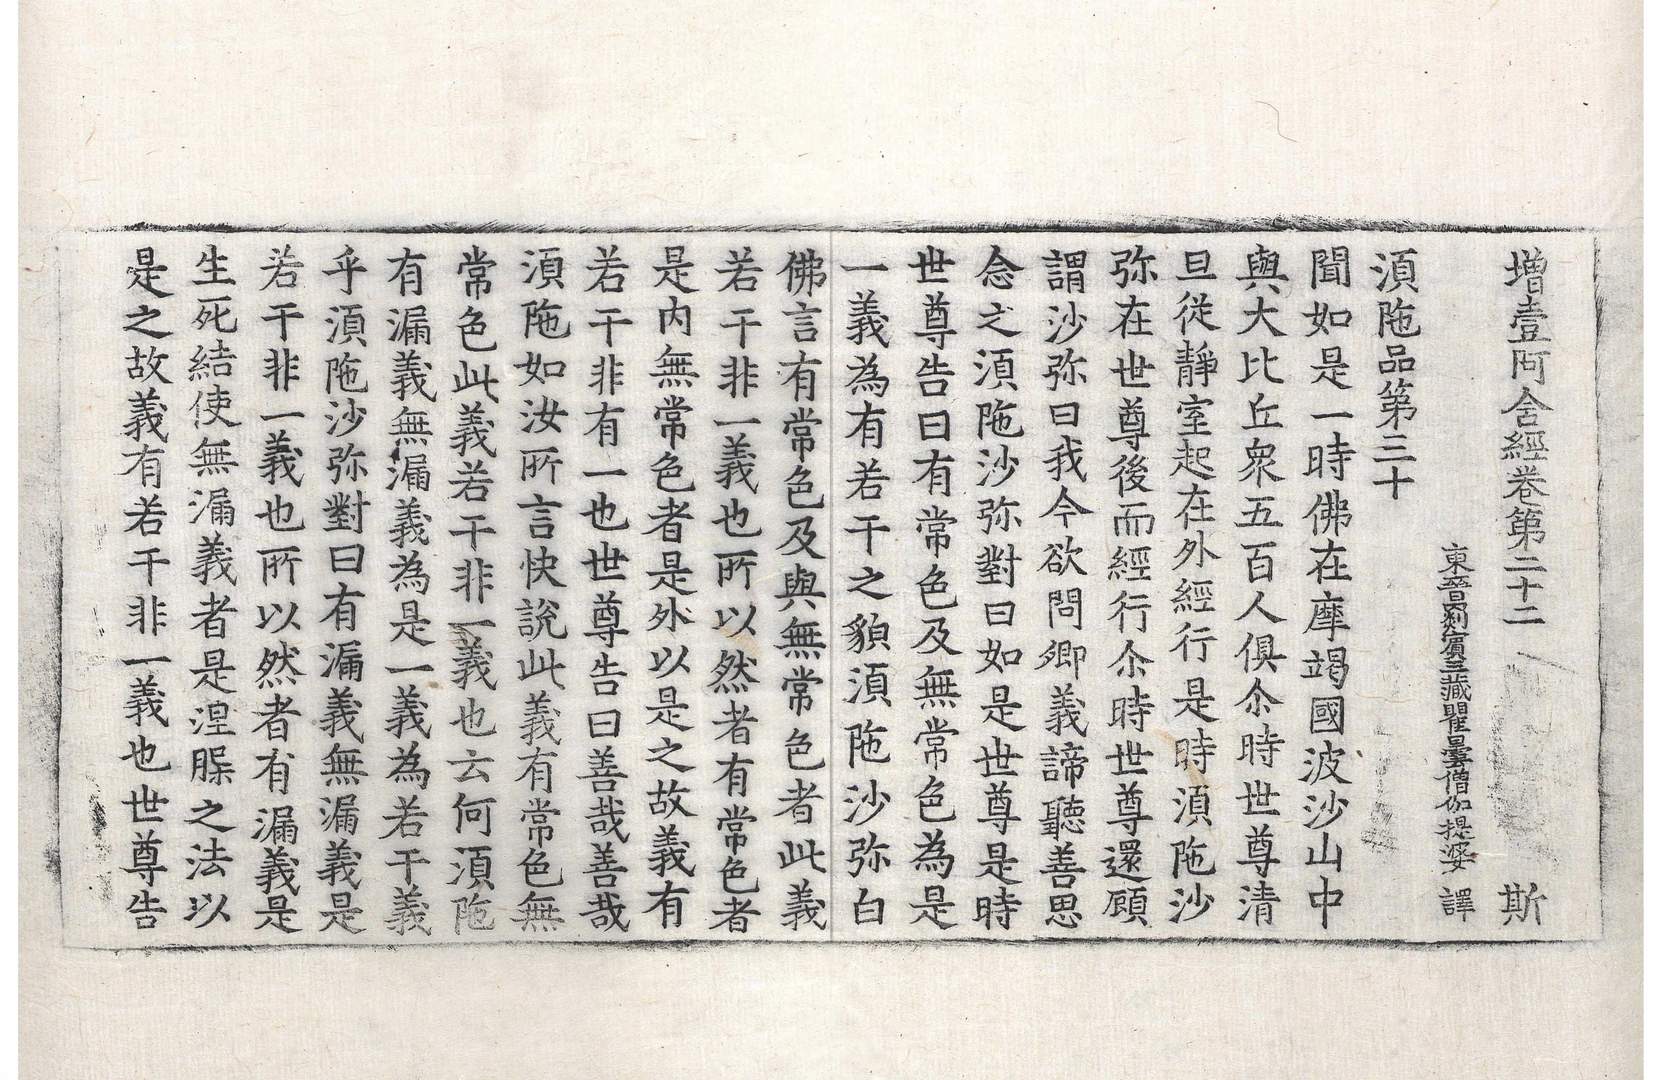 增壹阿含經卷第二十二 斯
東晉罽賓三藏瞿曇僧伽提婆 譯
湏陁品第三十
聞如是一時佛在摩竭國波沙山中
與大比丘衆五百人俱尒時世尊清
旦從靜室起在外經行是時湏陁沙
弥在世尊後而經行尒時世尊還顧
謂沙弥曰我今欲問卿義諦聽善思
念之湏陁沙弥對曰如是世尊是時
世尊告曰有常色及無常色為是
一義為有若干之貌湏陁沙弥白
佛言有常色及與無常色者此義
若干非一義也所以然者有常色者
是內無常色者是外以是之故義有
若干非有一也世尊告曰善哉善哉
湏陁如汝所言快說此義有常色無
常色此義若干非一義也云何湏陁
有漏義無漏義為是一義為若干義
乎湏陁沙弥對曰有漏義無漏義是
若干非一義也所以然者有漏義是
生死結使無漏義者是涅槃之法以
是之故義有若干非一義也世尊告